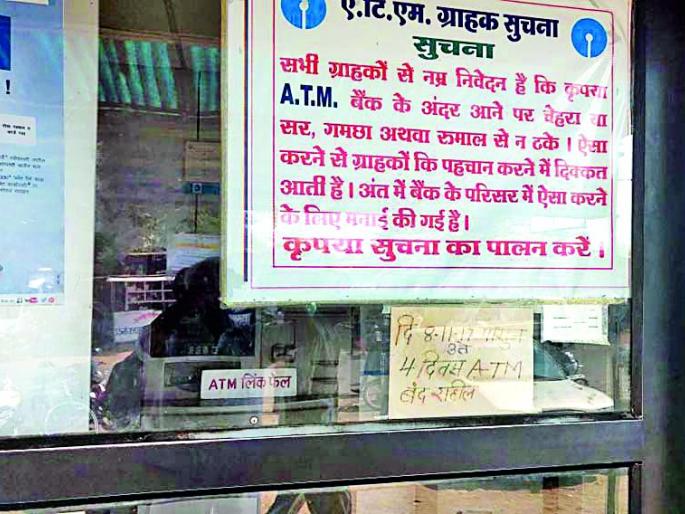 ए.टि.एम. ग्राहक सुचना
सुचना
सभी ग्राहकों से नम्र निवेदन है कि कृपया
A.T.M. बैंक के अंदर आने पर चेहरा या
सर, गमछा अथवा रुमाल से न ढके । ऐसा
करने से ग्राहकों कि पहचान करने में दिक्कत
आती है । अंत में बैंक के परिसर में ऐसा करने
के लिए मनाई की गई है।
कृपया सुचना का पालन करें ।
ATM लिंक फेल
दि 8-11-17
4 दिवस A-TM
बंद राहील